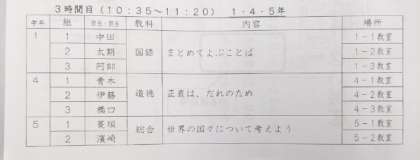 3時間目(10:35～11:20) 1・4・5年
学年 組 担当・担当 教科 内容 場所
1 1 中田 国語 まとめてよぶことば 1-1教室
2 太期 1-2教室
3 阿部 1-3教室
4 1 青木 道徳 正直は、だれのため 4-1教室
2 伊藤 4-2教室
3 橋口 4-3教室
5 1 総合 世界の国々について考えよう 5-1教室
2 濱崎 5-2教室